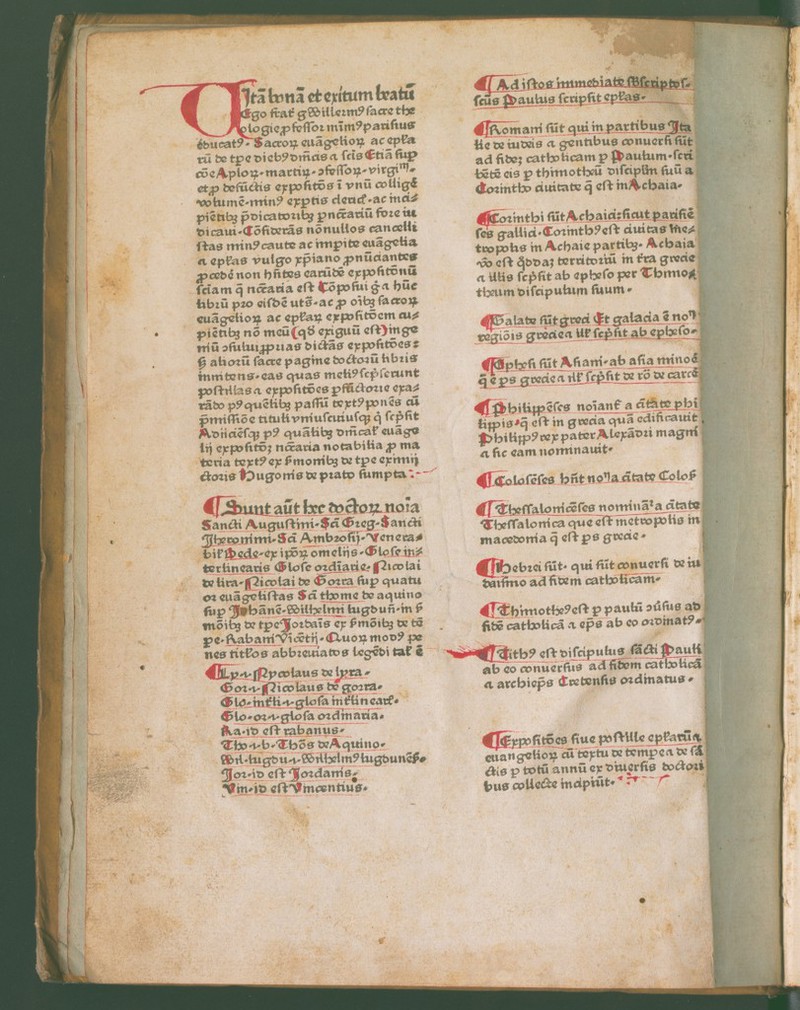 Vitā bonā et exitum beatū
Ego frat̄ gWillerm⁹ sacre the
ologie ꝓfessor mīm⁹ parisius
ēducat⁹. Sacroꝝ euāgelioꝝ ac epl̄a
rū de tp̄e dieb⁹ dn̄icis ⁊ sc̄is Etiā suꝑ
cōe Aploꝝ. martiꝝ. ↄfessoꝝ. virginū.
et ꝓ defūctis expositōs ī vnū collige
volumē. min⁹ exꝑtis cleric̄. ac inci⸗
piētibꝫ p̄dicatoribꝫ ꝓ nccāriū fore iu
dicaui. Cōsiderās nōnullos cancelli
stas min⁹ caute ac imꝑite euāgelia
⁊ epl̄as vulgo xp̄iano ꝓnūciantes
ꝓcedē non hn̄tes earūdē expositōnū
sciam q̄ nccāria est Cōposui g̈ ⁊ hūc
librū pro eisdē uts̄. ac ꝓ oībꝫ sacroꝝ
euāgelioꝝ ac epl̄aꝝ expositōem cu⸗
piētibꝫ nō meū (qd̄ exiguū est) inge
niū ↄsului ꝓprias dictās expositōes :
sꝫ alioꝝ sacre pagine doctorū libris
innitens. eas quas meli⁹ scp̄serunt
postillas ⁊ expositōes ꝑfūctorie exa⸗
rādo p⁹ quēlibꝫ passū text⁹ ponēs cū
p̄missiōe tituli vniuscuiusqꝫ q̄ scp̄sit
Adiiciēsqꝫ p⁹ quālibꝫ dn̄icaƚ euāge
lij expositōꝫ nccāria notabilia ꝓ ma
teria text⁹ ex ẜmonibꝫ de tp̄e eximij
doctoris Hugonis de prato sumpta :⸗
Sunt aūt hec doctoꝝ noīa
Sancti Augustini. Sc̄i Greg. Sancti
Jheronimi. Sc̄i Ambrosij. Venera⸗
biƚ Bede. ex ip̄oꝝ omeliis. Glose in⸗
terlinearis Glose ordīarie. Nicolai
de lira. Nicolai de Gorra suꝑ quatu
or euāgelistas Sc̄i thome de aquino
suꝑ Johānē. Wilhelmi lugduñ. in ẜ
mōibꝫ de tp̄e Jordāis ex ẜmōibꝫ de tē
pe. Rabani Vicētij. Quoꝝ mod⁹ pe
nes titl̄os abbreuiatos legēdi taƚ ē
Ly. ⁊. Nycolaus de lyra.
Gor. ⁊. Nicolaus de gorra.
Glo. int̄li. ⁊. glosa int̄linear̄.
Glo. or. ⁊. glosa ordinaria.
Ra. id est rabanus.
Tho. ⁊. b. Thōs de Aquino.
Wil. lugdu. ⁊. Wilhelm⁹ lugdunēs̄.
Jor. id est Jordanis.
Vin. id est Vincentius.
Ad istos immediate sb̄scriptos.
scūs Paulus scripsit epl̄as.
Romani sūt qui in partibus Ita
lie de iudeis ⁊ gentibus conuersi sūt
ad fideꝫ catholicam ꝑ Paulum. scri
bētē eis ꝑ thimotheū discipl̄m suū a
Corintho ciuitate q̄ est in Achaia.
Corinthi sūt Achaici: sicut parisiē
ses gallici. Corinth⁹ est ciuitas me⸗
tropolis in Achaie partibꝫ. Achaia
vo est qd̄daꝫ territoriū in t̄ra grecie
⁊ illis scp̄sit ab epheso per Thimo
theum discipulum suum.
Galate sūt greci Et galacia ē noꝫ
regiōis grecie ⁊ iƚƚ scp̄sit ab epheso.
Ephesi sūt Asiani. ab asia minoē
q̄ ē ꝑs grecie ⁊ iƚƚ scp̄sit de ro. de carcē
Philippēses noīant̄ a ciītate phi
lippis. q̄ est in grecia quā edificauit
Philipp⁹ rex pater Alexādri magni
⁊ sic eam nominauit.
Colosēses hn̄t noīa a ciītate Coloẜ
Thessalonicēses nominātͬ a ciītate
Thessalonica que est metropolis in
macedonia q̄ est ꝑs grecie.
Hebrei sūt. qui sūt conuersi de iu
daismo ad fidem catholicam.
Thimothe⁹ est ꝑ paulū ↄūsus ad
fidē catholicā ⁊ ep̄s ab eo ordinat⁹.
Tith⁹ est discipulus sācti Pauli
ab eo conuersus ad fidem catholicā
⁊ archiep̄s Cretensis ordinatus.
Expositōes siue postille epl̄arū ⁊
euangelioꝝ cū textu de tempe ⁊ de sā
ctis ꝑ totū annū ex diuersis doctori
bus collecte incipiūt.